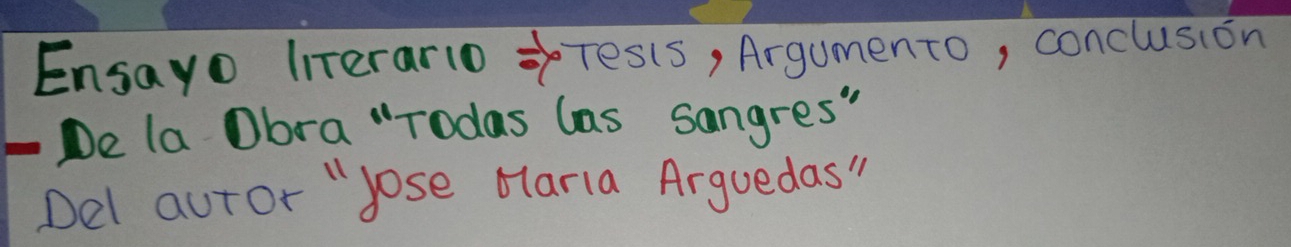 Ensayo literario => Tesis, Argumento, conclusión
- De la Obra "Todas las sangres"
Del autor "Jose Maria Arguedas"